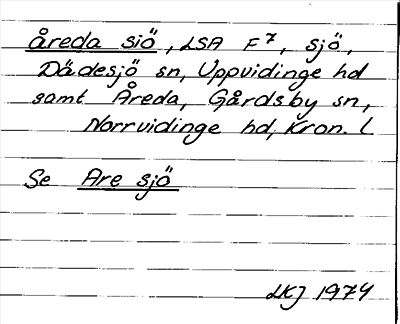 åreda siö, LSA F7, sjö,
Dädesjö sn, Uppvidinge hd
samt Åreda, Gårdsby sn,
Norrvidinge hd, Kron. l
Se Are sjö
LKJ 1974